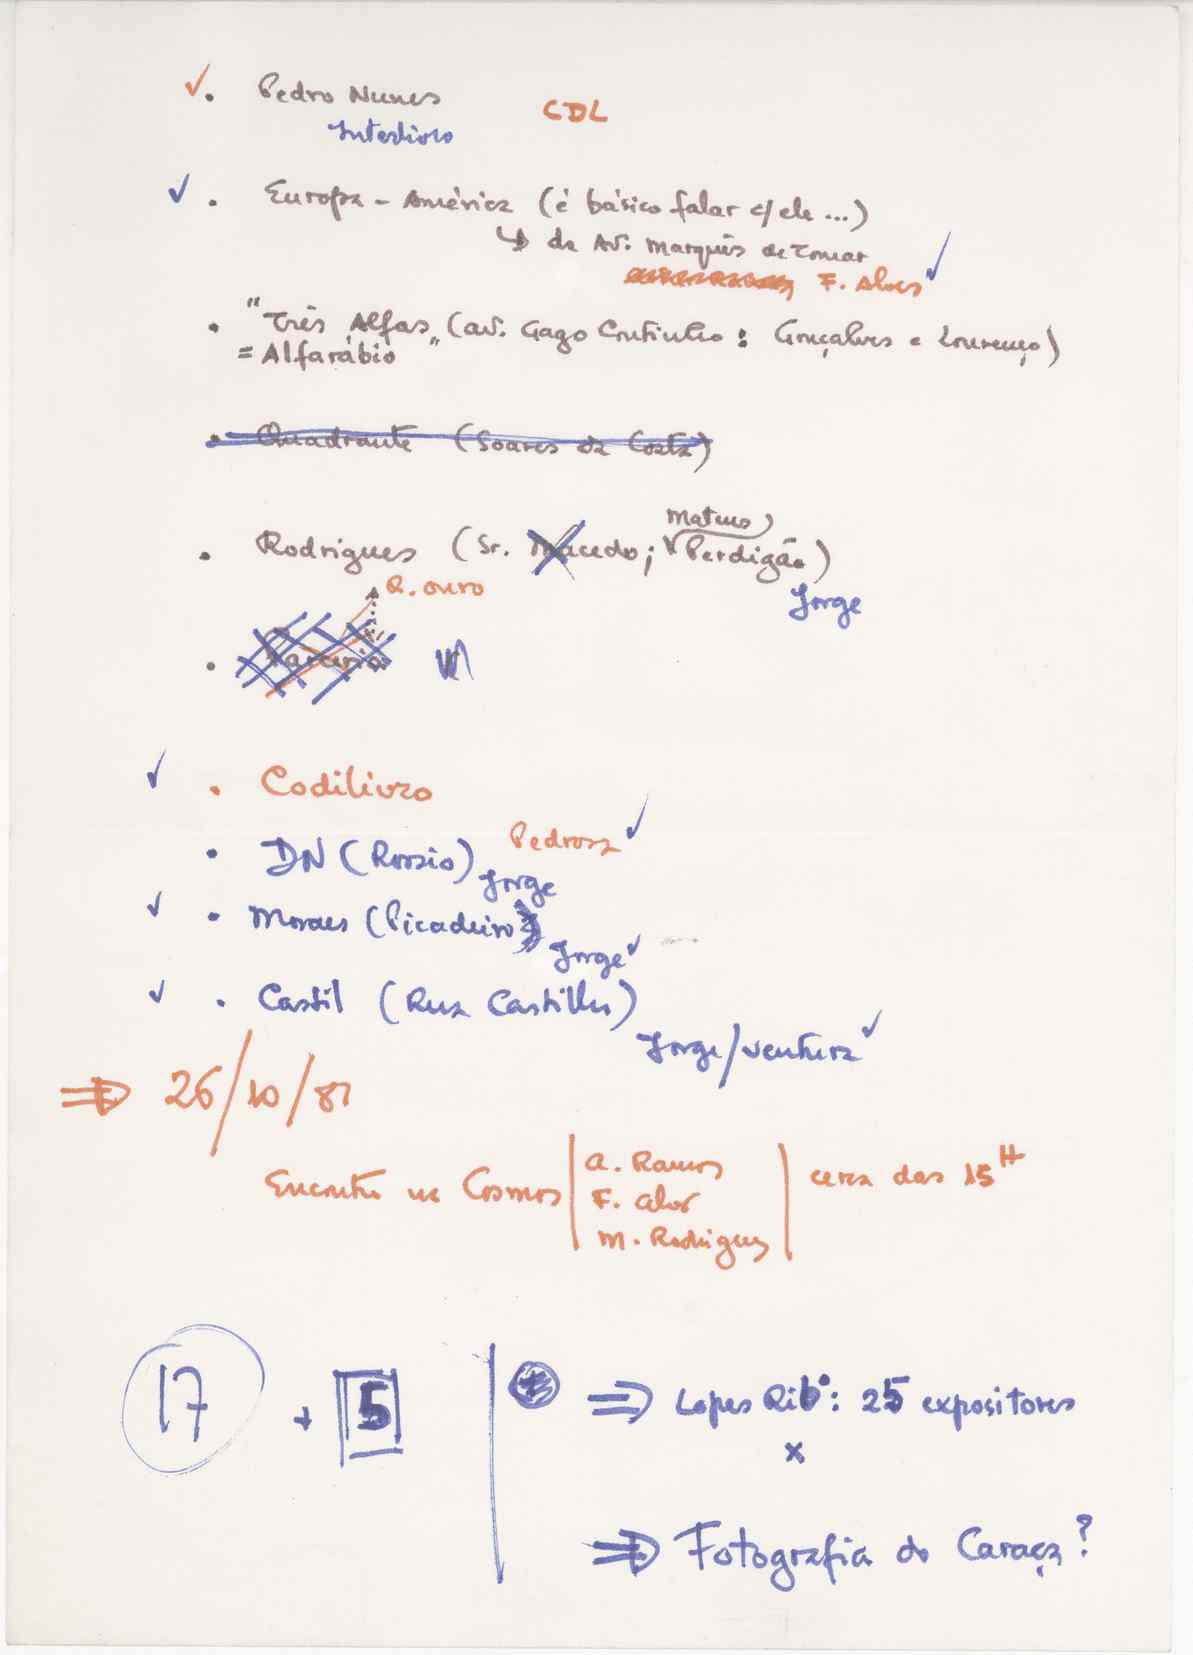 ✓ • Pedro Nunes CDL
Interlivro
✓ • Europa - América (é básico falar c/ ele ...)
↳ da Av. Marquês de Tomar
F. Alves ✓
• "Três Alfas" (av. Gago Coutinho : Gonçalves e Lourenço)
= Alfarábio
• Quadrante (Soares da Costa)
Mateus
• Rodrigues (Sr. Macedo; Perdigão)
R. Ouro
Jorge
•
✓ • Codilivro
Pedrosa ✓
• DN (Rossio)
Jorge
✓ • Moraes (Picadeiro)
Jorge ✓
✓ • Castil (Rua Castilho)
Jorge/Ventura ✓
⇒ 26/10/81
Encontro na Cosmos | A. Ramos | cerca das 15H
F. Alves
M. Rodrigues
17 + 5 ⇒ Lopes Ribº: 25 expositores
x
⇒ Fotografia do Caraça?